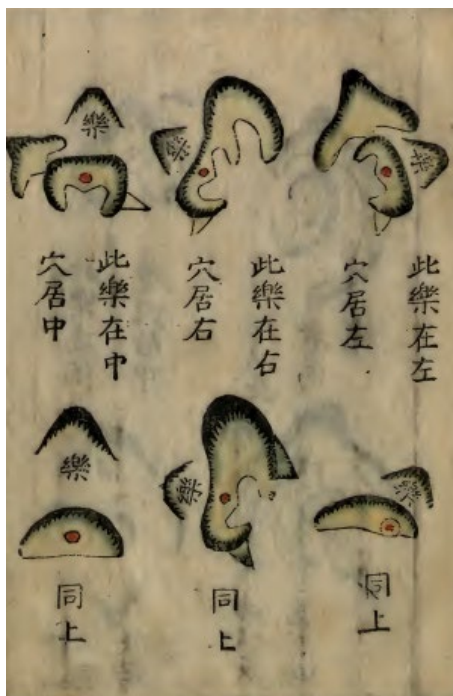 樂
此樂在左
穴居左
樂
此樂在右
穴居右
樂
此樂在中
穴居中
樂
同上
樂
同上
樂
同上